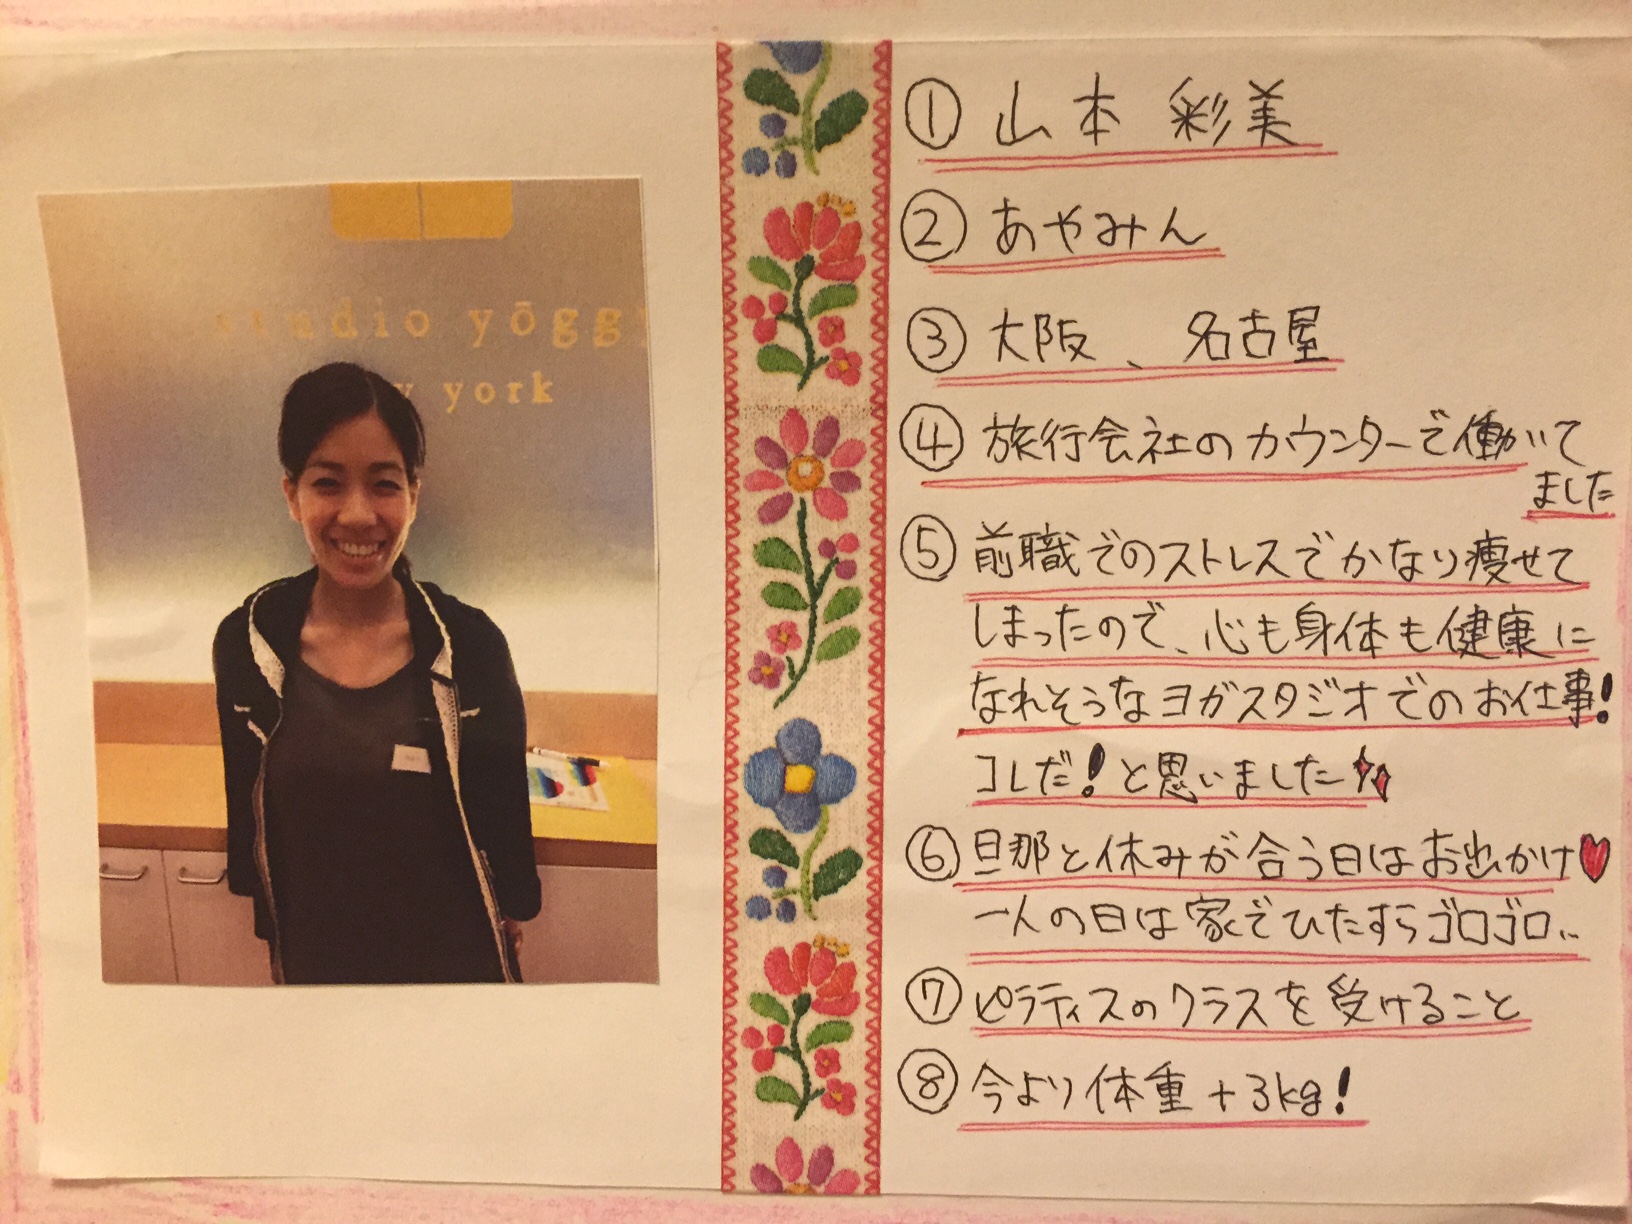 studio yōggy
york
① 山本 彩美
② あやみん
③ 大阪、名古屋
④ 旅行会社のカウンターで働いて
ました
⑤ 前職でのストレスでかなり痩せて
しまったので、心も身体も健康に
なれそうなヨガスタジオでのお仕事!
コレだ!と思いました
⑥ 旦那と休みが合う日はお出かけ♥
一人の日は家でひたすらゴロゴロ..
⑦ ピラティスのクラスを受けること
⑧ 今より体重+3kg!